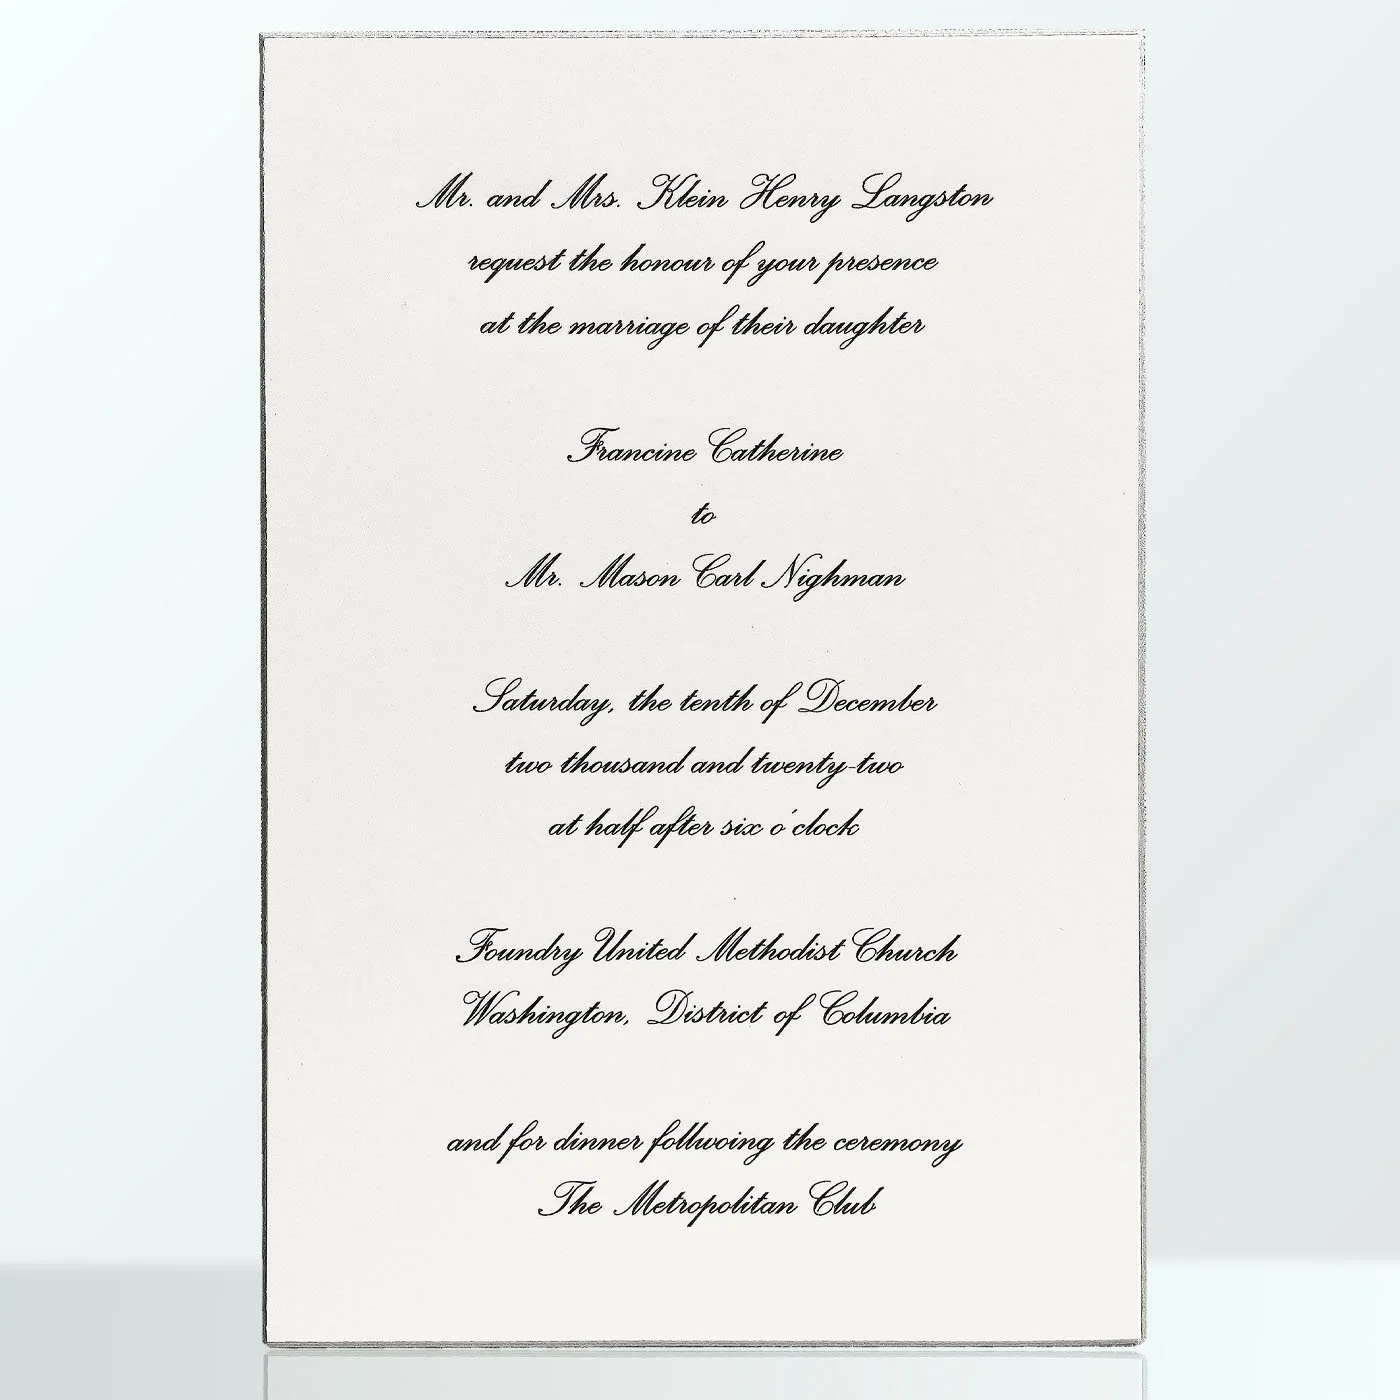 Mr. and Mrs. Klein Henry Langston
request the honour of your presence
at the marriage of their daughter
Francine Catherine
to
Mr. Mason Carl Nighman
Saturday, the tenth of December
two thousand and twenty-two
at half after six o'clock
Foundry United Methodist Church
Washington, District of Columbia
and for dinner follwoing the ceremony
The Metropolitan Club